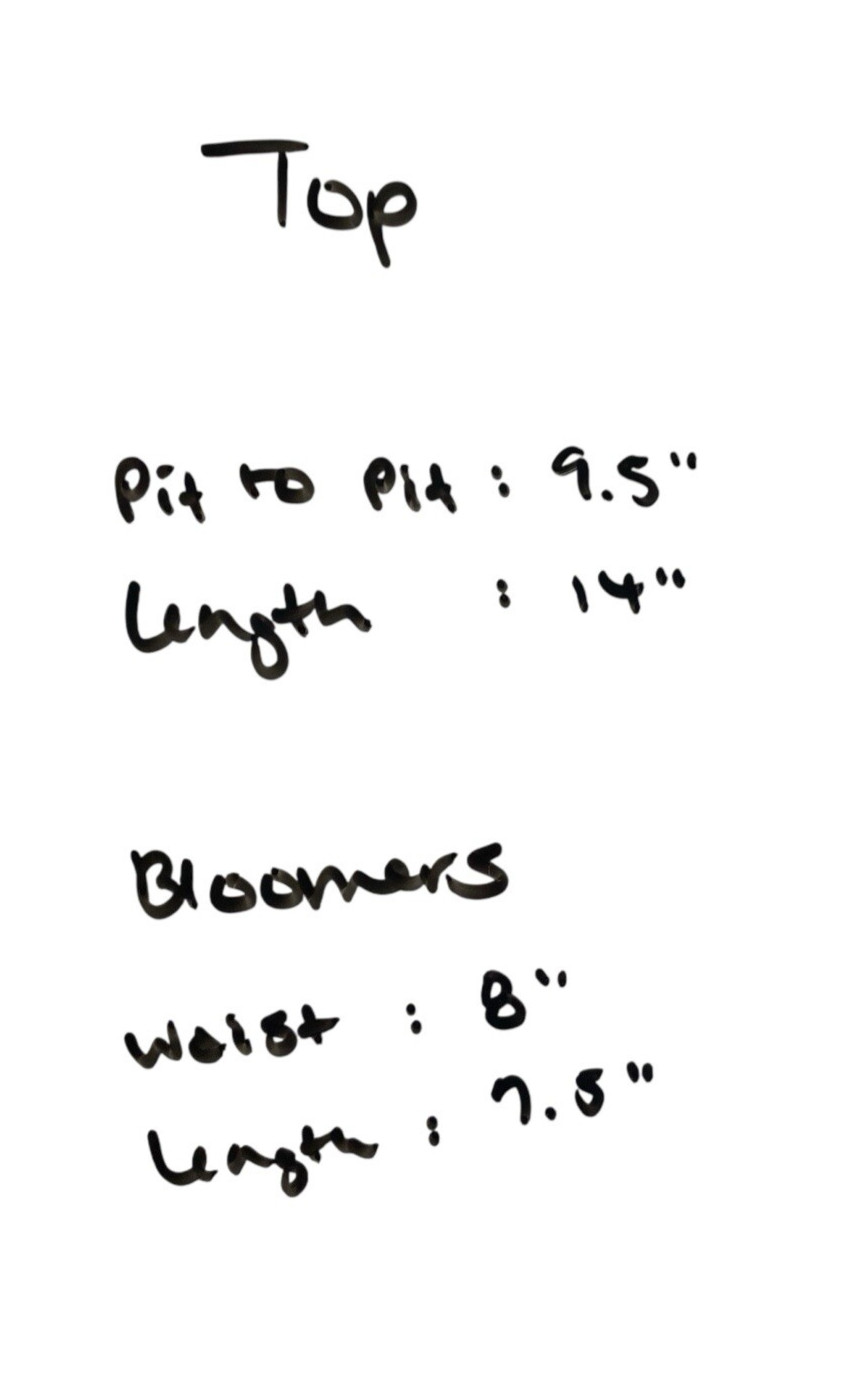 Top
Pit to Pit : 9.5"
Length : 14"
Bloomers
Waist : 8"
Length : 7.5"